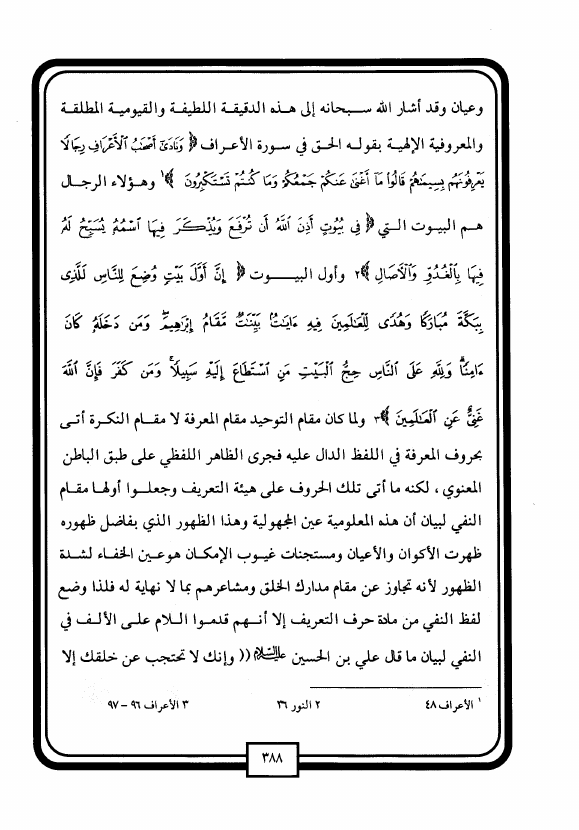 وعيان وقد أشار الله سبحانه إلى هذه الدقيقة اللطيفة والقيومية المطلقة
والمعروفية الإلهية بقوله الحق في سورة الأعراف ﴿ وَنَادَىٰٓ أَصْحَٰبُ ٱلْأَعْرَافِ رِجَالًا
يَعْرِفُونَهُم بِسِيمَىٰهُمْ قَالُوا۟ مَآ أَغْنَىٰ عَنكُمْ جَمْعُكُمْ وَمَا كُنتُمْ تَسْتَكْبِرُونَ ﴾١ وهؤلاء الرجال
هم البيوت التي ﴿ فِى بُيُوتٍ أَذِنَ ٱللَّهُ أَن تُرْفَعَ وَيُذْكَرَ فِيهَا ٱسْمُهُۥ يُسَبِّحُ لَهُۥ
فِيهَا بِٱلْغُدُوِّ وَٱلْءَاصَالِ ﴾٢ وأول البيوت ﴿ إِنَّ أَوَّلَ بَيْتٍ وُضِعَ لِلنَّاسِ لَلَّذِى
بِبَكَّةَ مُبَارَكًا وَهُدًى لِّلْعَٰلَمِينَ فِيهِ ءَايَٰتٌۢ بَيِّنَٰتٌ مَّقَامُ إِبْرَٰهِيمَ ۖ وَمَن دَخَلَهُۥ كَانَ
ءَامِنًا ۗ وَلِلَّهِ عَلَى ٱلنَّاسِ حِجُّ ٱلْبَيْتِ مَنِ ٱسْتَطَاعَ إِلَيْهِ سَبِيلًا ۚ وَمَن كَفَرَ فَإِنَّ ٱللَّهَ
غَنِىٌّ عَنِ ٱلْعَٰلَمِينَ ﴾٣ ولما كان مقام التوحيد مقام المعرفة لا مقام النكرة أتى
بحروف المعرفة في اللفظ الدال عليه فجرى الظاهر اللفظي على طبق الباطن
المعنوي ، لكنه ما أتى تلك الحروف على هيئة التعريف وجعلوا أولها مقام
النفي لبيان أن هذه المعلومية عين المجهولية وهذا الظهور الذي بفاضل ظهوره
ظهرت الأكوان والأعيان ومستجنات غيوب الإمكان هوعين الخفاء لشدة
الظهور لأنه تجاوز عن مقام مدارك الخلق ومشاعرهم بما لا نهاية له فلذا وضع
لفظ النفي من مادة حرف التعريف إلا أنهم قدموا اللام على الألف في
النفي لبيان ما قال علي بن الحسين عليه السلام (( وإنك لا تحتجب عن خلقك إلا
١ الأعراف ٤٨ ٢ النور ٣٦ ٣ الأعراف ٩٦ – ٩٧
٣٨٨